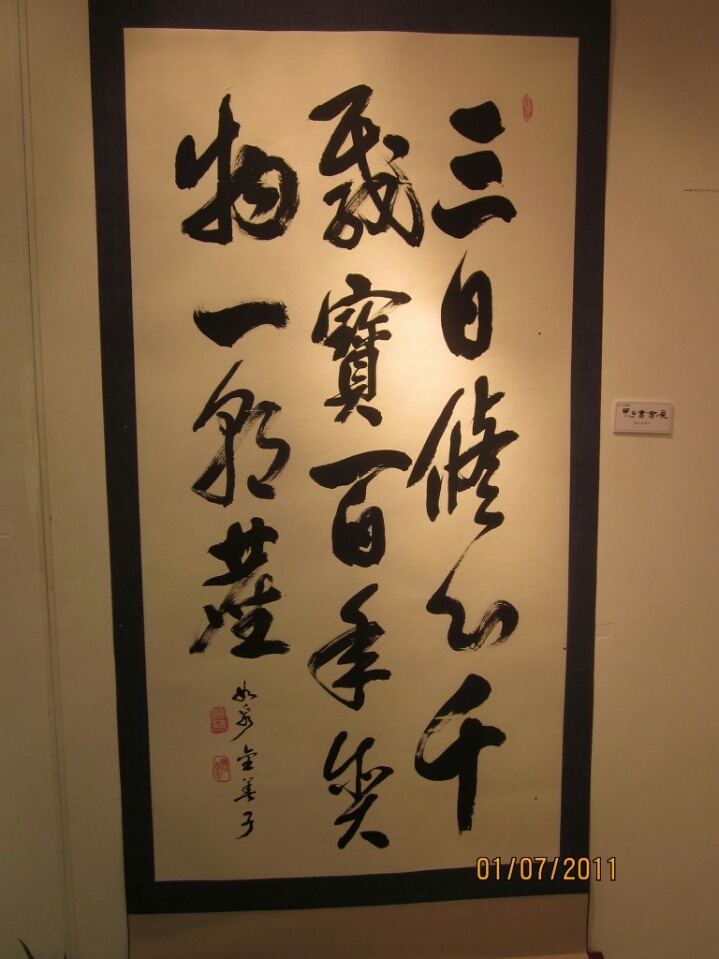 三日修心千
載寶百年貪
物一朝塵
如泉 金善子
01/07/2011